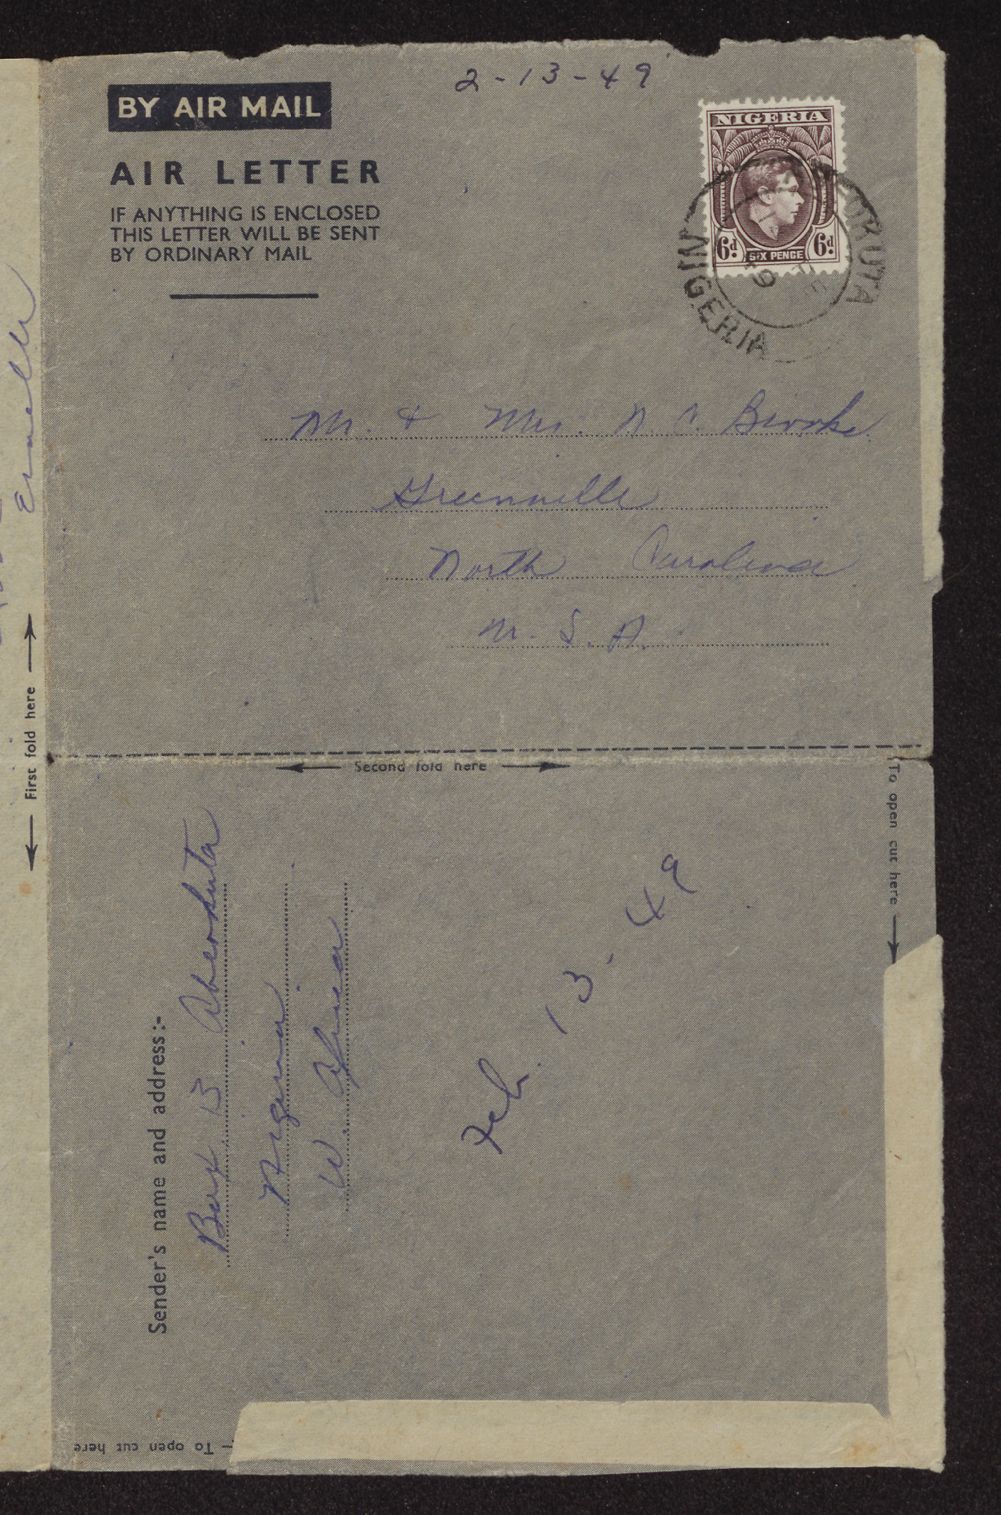 2-13-49
BY AIR MAIL
AIR LETTER
IF ANYTHING IS ENCLOSED
THIS LETTER WILL BE SENT
BY ORDINARY MAIL
NIGERIA
6d SIX PENCE 6d
NIGERIA
Mr. & Mrs. N C. Brooks.
Greenville
North Carolina
U. S. A.
Ernelle
First fold here
Second fold here
To open cut here
Sender's name and address:-
Box 13 Abeokuta
Nigeria
W. Africa
Feb. 13-49
To open cut here